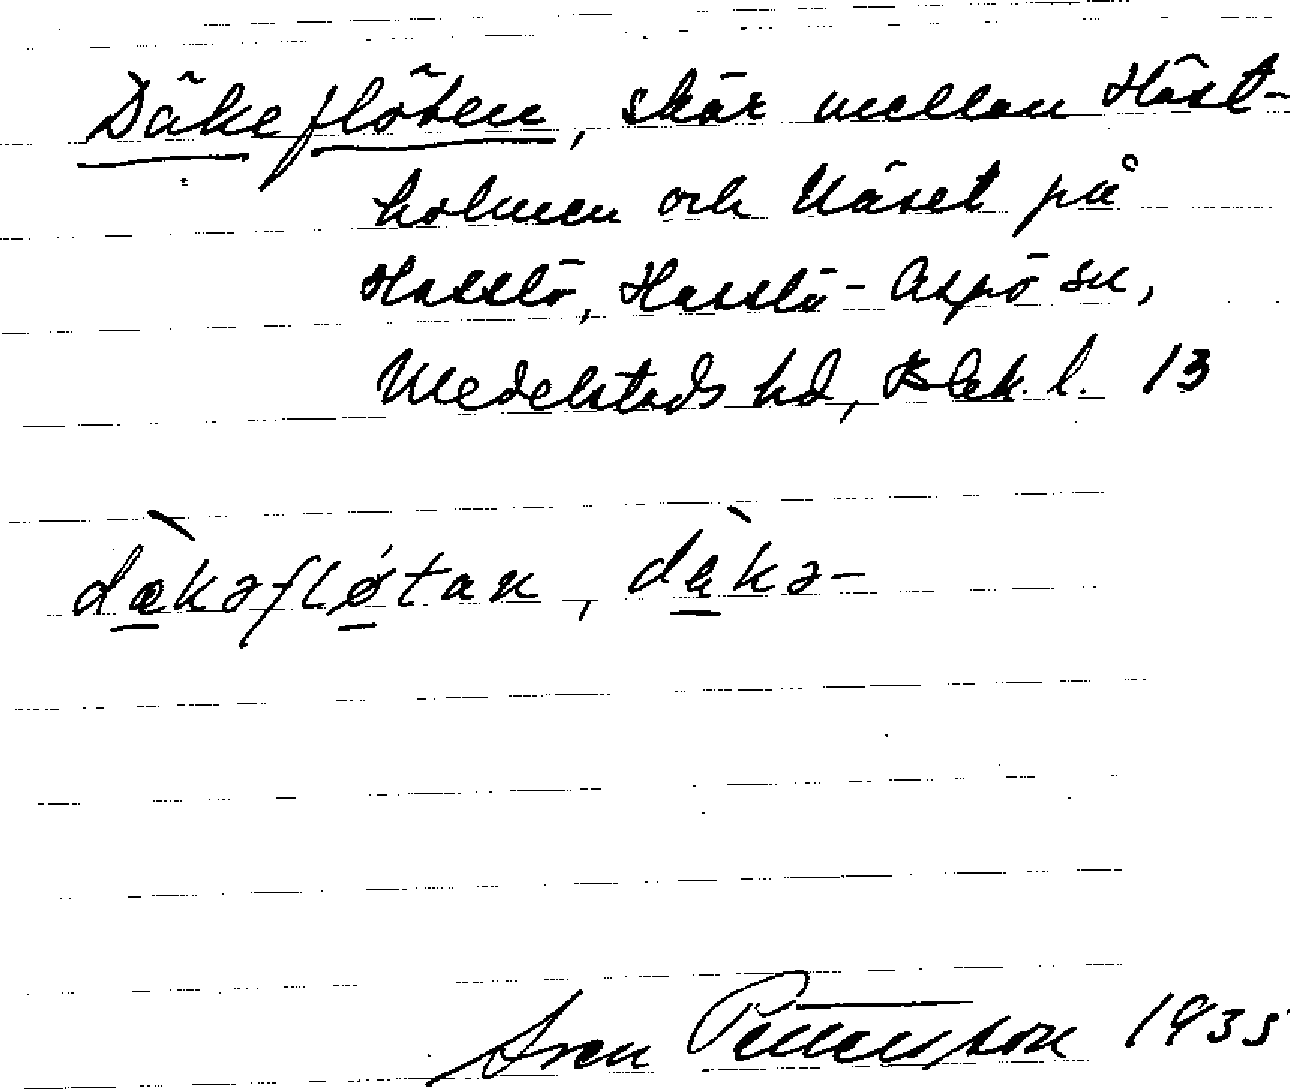 Däkeflöten, skär mellan Häst-
holmen och Näset på
Hasslö, Hasslö-Aspö sn,
Medelstads hd, Blek. l. 13
dæ̀kəfløtan, dèkə-
Sven Pettersson 1935